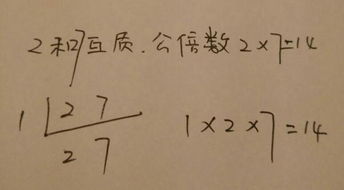 2和7互质.公倍数2×7=14
1 2 7
2 7
1×2×7=14